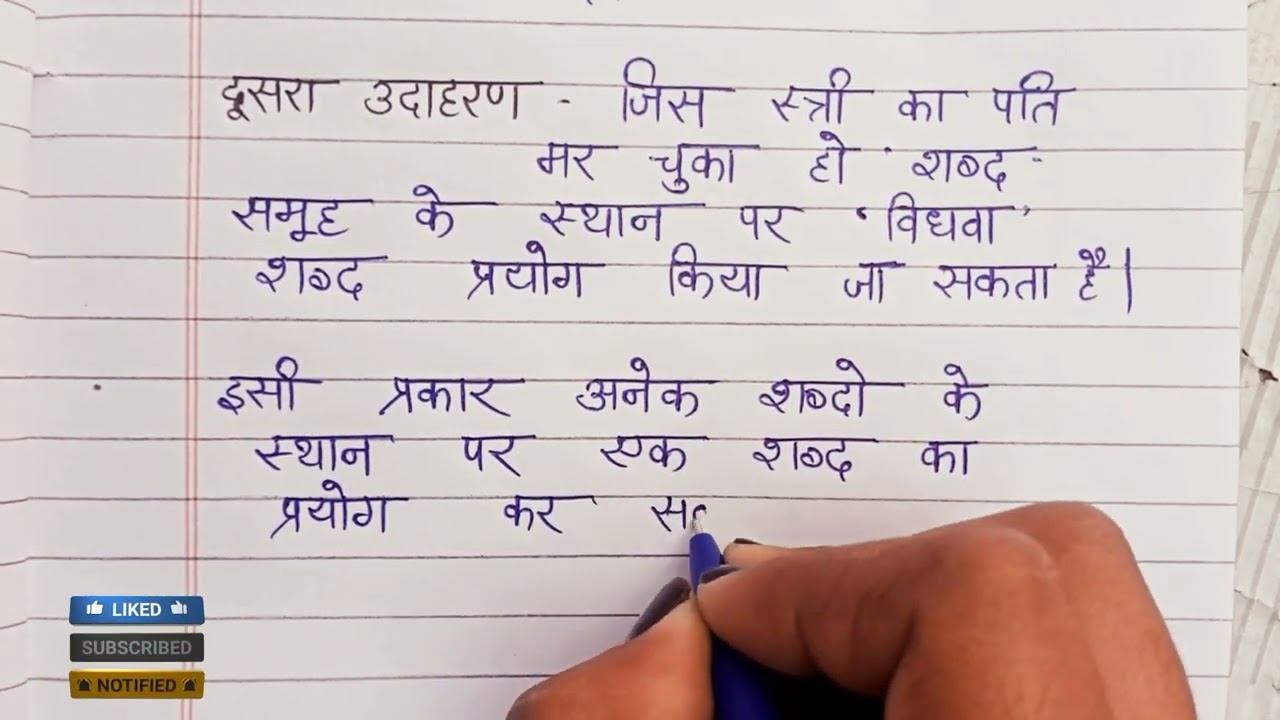 दूसरा उदाहरण - जिस स्त्री का पति
मर चुका हो शब्द
समूह के स्थान पर 'विधवा'
शब्द प्रयोग किया जा सकता है।
इसी प्रकार अनेक शब्दो के
स्थान पर एक शब्द का
प्रयोग कर
LIKED
SUBSCRIBED
NOTIFIED